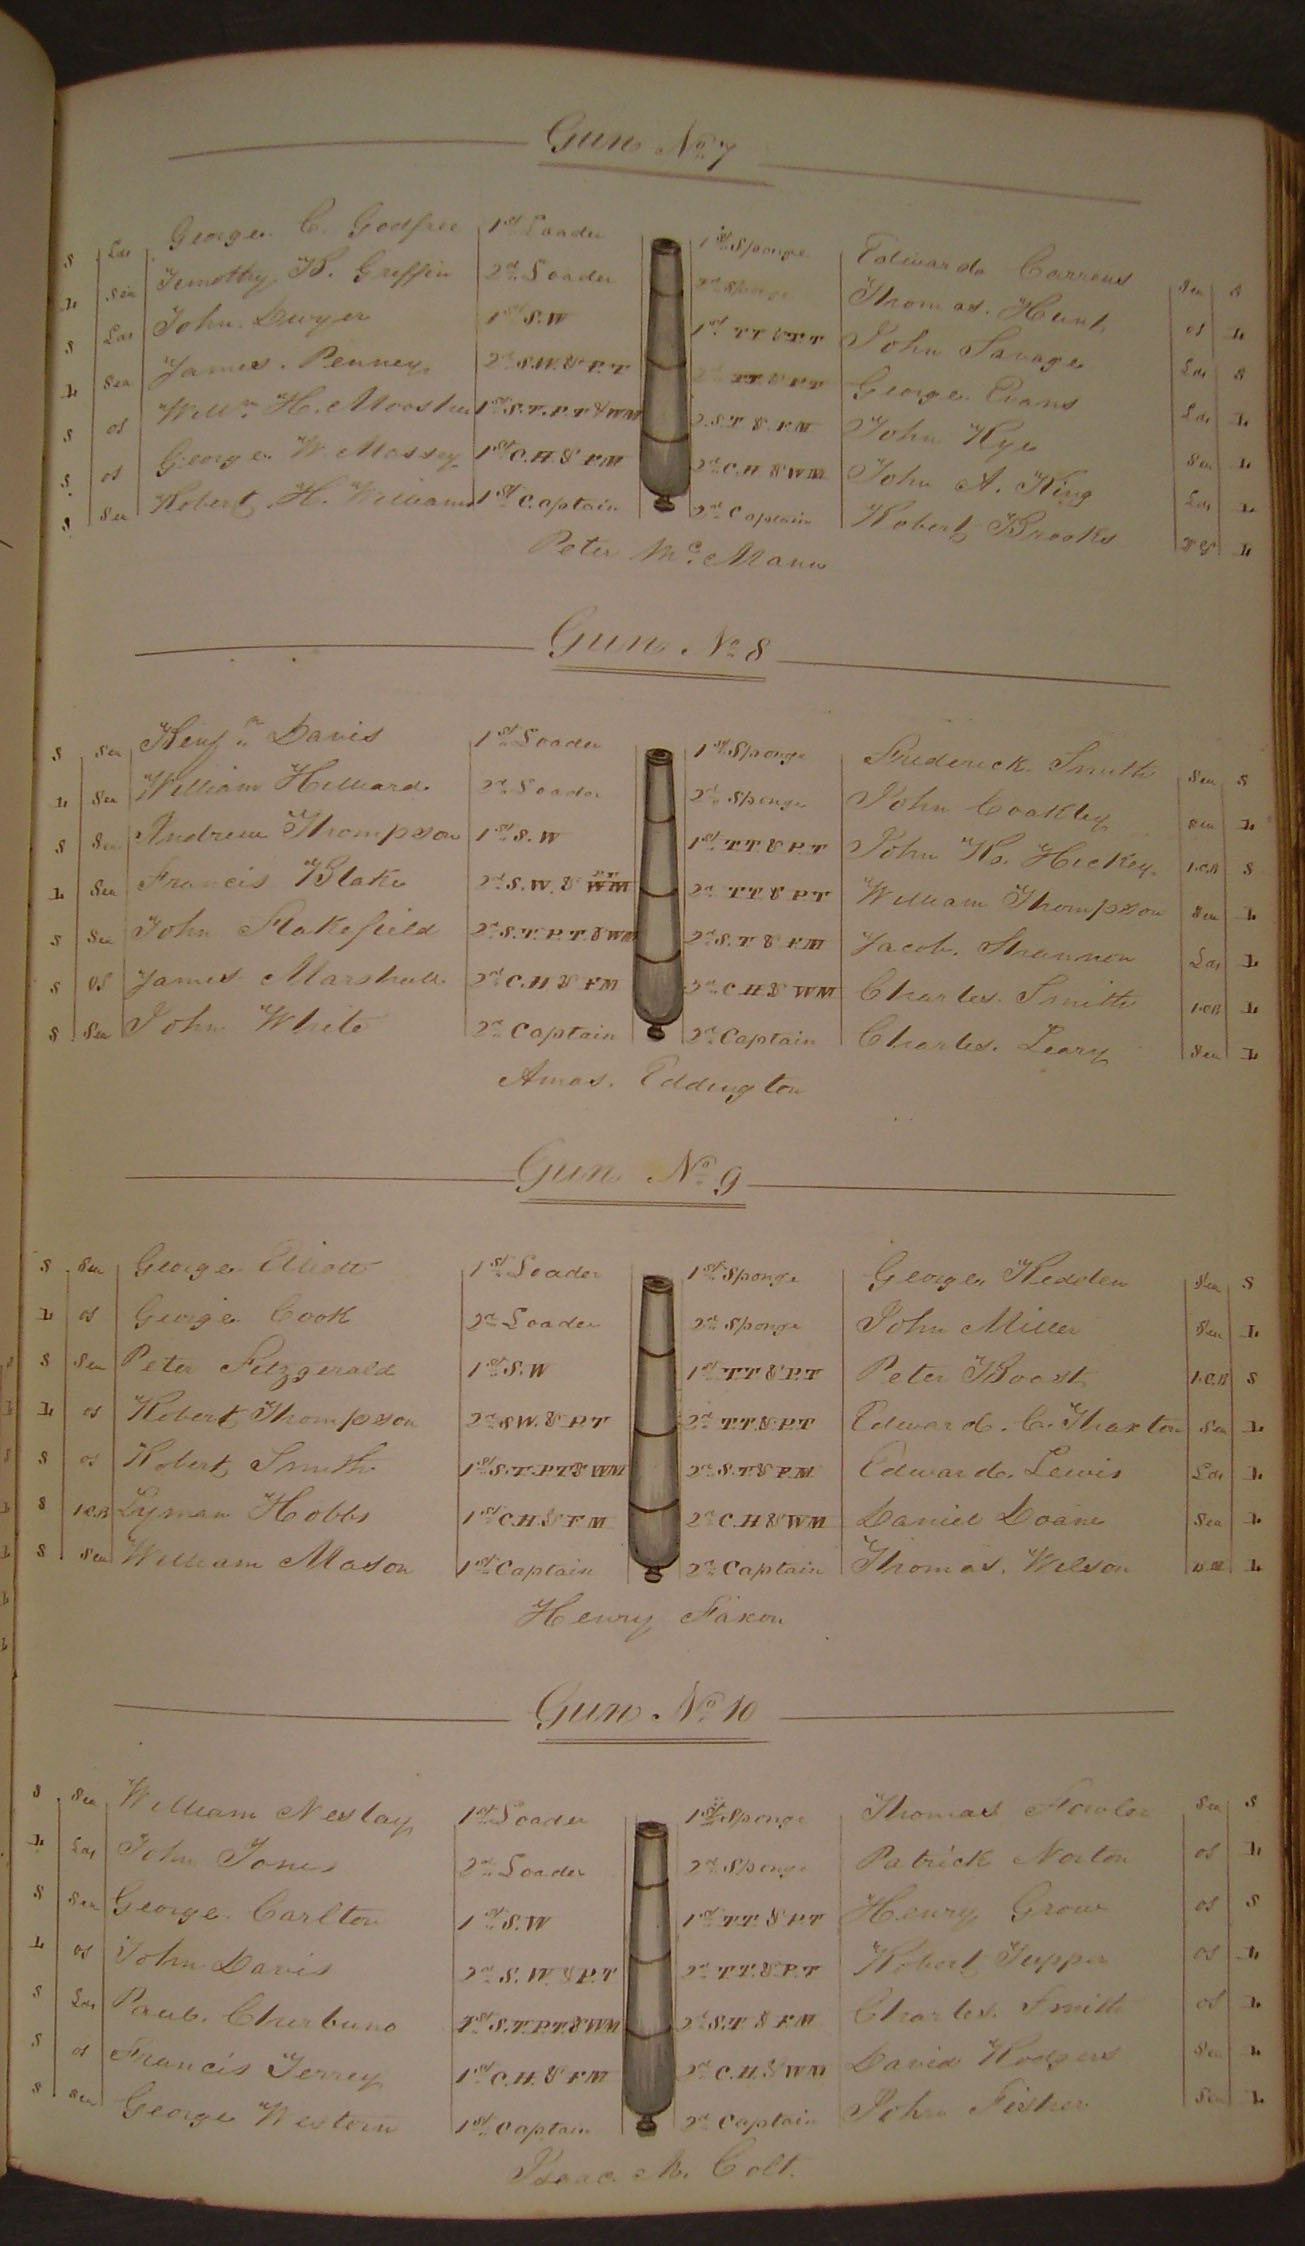 Gun No 7
S Lds George C. Godfree 1st Loader 1st Sponge Edward Carrens Sea S
L Sea Timothy B. Griffin 2d Loader 2d Sponge Thomas Hunt OS L
S Lds John Dwyer 1st S.W 1st T.T & P.T John Savage Lds S
L Sea James Penney 2d S.W. & P.T 2d T.T. & P.T George Evans Lds L
S OS Willm H. Moosher 1st S.T. P.T & WM 2 S.T & F.M John Kye Sea L
S OS George W. Massey 1st C.H. & F.M 2d C.H & WM John A. King Lds L
S Sea Robert H. Williams 1st Captain 2d Captain Robert Brooks L
Peter Mc.Mann
Gun No 8
S Sea Benjn Davis 1st Loader 1st Sponge Frederick Smith Sea S
L Sea William Hilliard 2d Loader 2d Sponge John Coakley Sea L
S Sea Andrew Thompson 1st S.W 1st T.T & P.T John Hickey 1.C.B S
L Sea Francis Blake 2d S.W. & WM PT 2d T.T & P.T William Thompson Sea L
S Sea John Flakefield 2d S.T. P.T. & WM 2d S.T & F.M Jacob Shannon Lds L
S OS James Marshall 2d C.H & FM 2d C.H & WM Charles Smith 1.C.B L
S Sea John White 2d Captain 2d Captain Charles Leary Sea L
Amos. Eddington
Gun No 9
S Sea George Elliott 1st Loader 1st Sponge George Redden Sea S
L OS George Cook 2d Loader 2d Sponge John Miller Sea L
S Sea Peter Fitzgerald 1st S.W 1st T.T & P.T Peter Boast 1.C.B S
L OS Robert Thompson 2d S.W. & P.T 2d T.T. & P.T Edward C. Tharton Sea L
S OS Robert Smith 1st S.T. P.T & WM 2d S.T & F.M Edward Lewis Lds L
S 1.C.B Lyman Hobbs 1st C.H & F M 2d C.H & WM Daniel Doane Sea L
S Sea William Mason 1st Captain 2d Captain Thomas Wilson L
Henry Faxon
Gun No 10
S Sea William Neslay 1st Loader 1st Sponge Thomas Fowler Sea S
L Lds John Jones 2d Loader 2d Sponge Patrick Norton OS L
S Sea George Carlton 1st S.W 1st T.T. & P.T Henry Grow OS S
L OS John Davis 2d S.W. & P.T 2d T.T. & P.T Robert Tupper OS L
S Lds Paul Cherbuno 1st S.T. P.T. & WM 2d S.T & F.M Charles Smith OS L
S OS Francis Terrey 1st C.H. & F.M 2d C.H. & WM David Rodgers Sea L
S Sea George Western 1st Captain 2d Captain John Fisher Sea L
Isaac M. Colt.